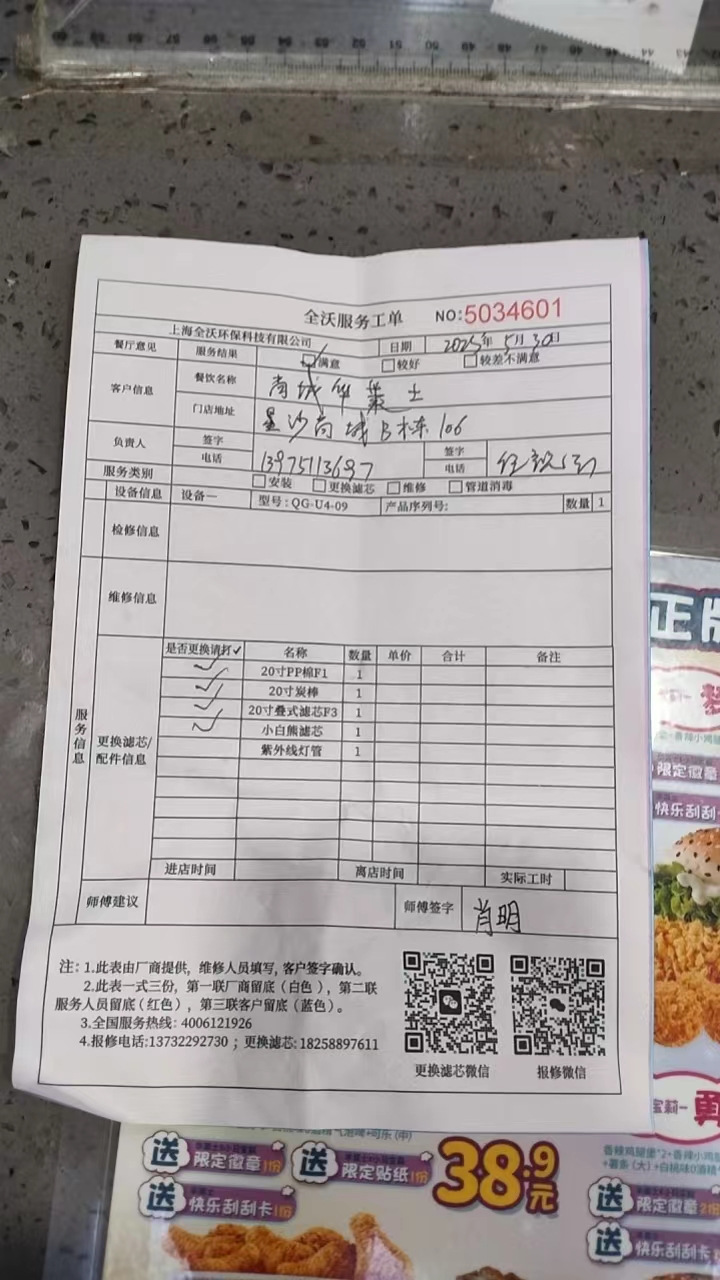 57 56 55 54 53 52 51 50 49 48 47 46 45 44 43
全沃服务工单 NO:5034601
上海全沃环保科技有限公司 日期 2025年5月30日
餐厅意见 服务结果 ☑满意 □较好 □较差不满意
客户信息 餐饮名称 尚城华莱士
门店地址 星沙尚城B栋106
负责人 签字 签字
电话 13975113697 电话
服务类别 □安装 □更换滤芯 □维修 □管道消毒
设备信息 设备一 型号:QG-U4-09 产品序列号: 数量 1
检修信息
维修信息
服务信息
更换滤芯/配件信息
是否更换请打✓ 名称 数量 单价 合计 备注
✓ 20寸PP棉F1 1
✓ 20寸炭棒 1
✓ 20寸叠式滤芯F3 1
✓ 小白熊滤芯 1
紫外线灯管 1
进店时间 离店时间 实际工时
师傅建议 师傅签字 肖明
注: 1.此表由厂商提供, 维修人员填写, 客户签字确认。
2.此表一式三份, 第一联厂商留底(白色), 第二联
服务人员留底(红色), 第三联客户留底(蓝色)。
3.全国服务热线: 4006121926
4.报修电话:13732292730 ; 更换滤芯: 18258897611
更换滤芯微信 报修微信
正版
限定徽章
快乐刮刮
宝莉一
送 限定徽章1份 送 限定贴纸1份 38.9元
送 快乐刮刮卡1份
香辣鸡腿堡*2+香辣小鸡腿
+薯条(大)+白桃味0酒精
送 限定徽章2份
送 快乐刮刮卡